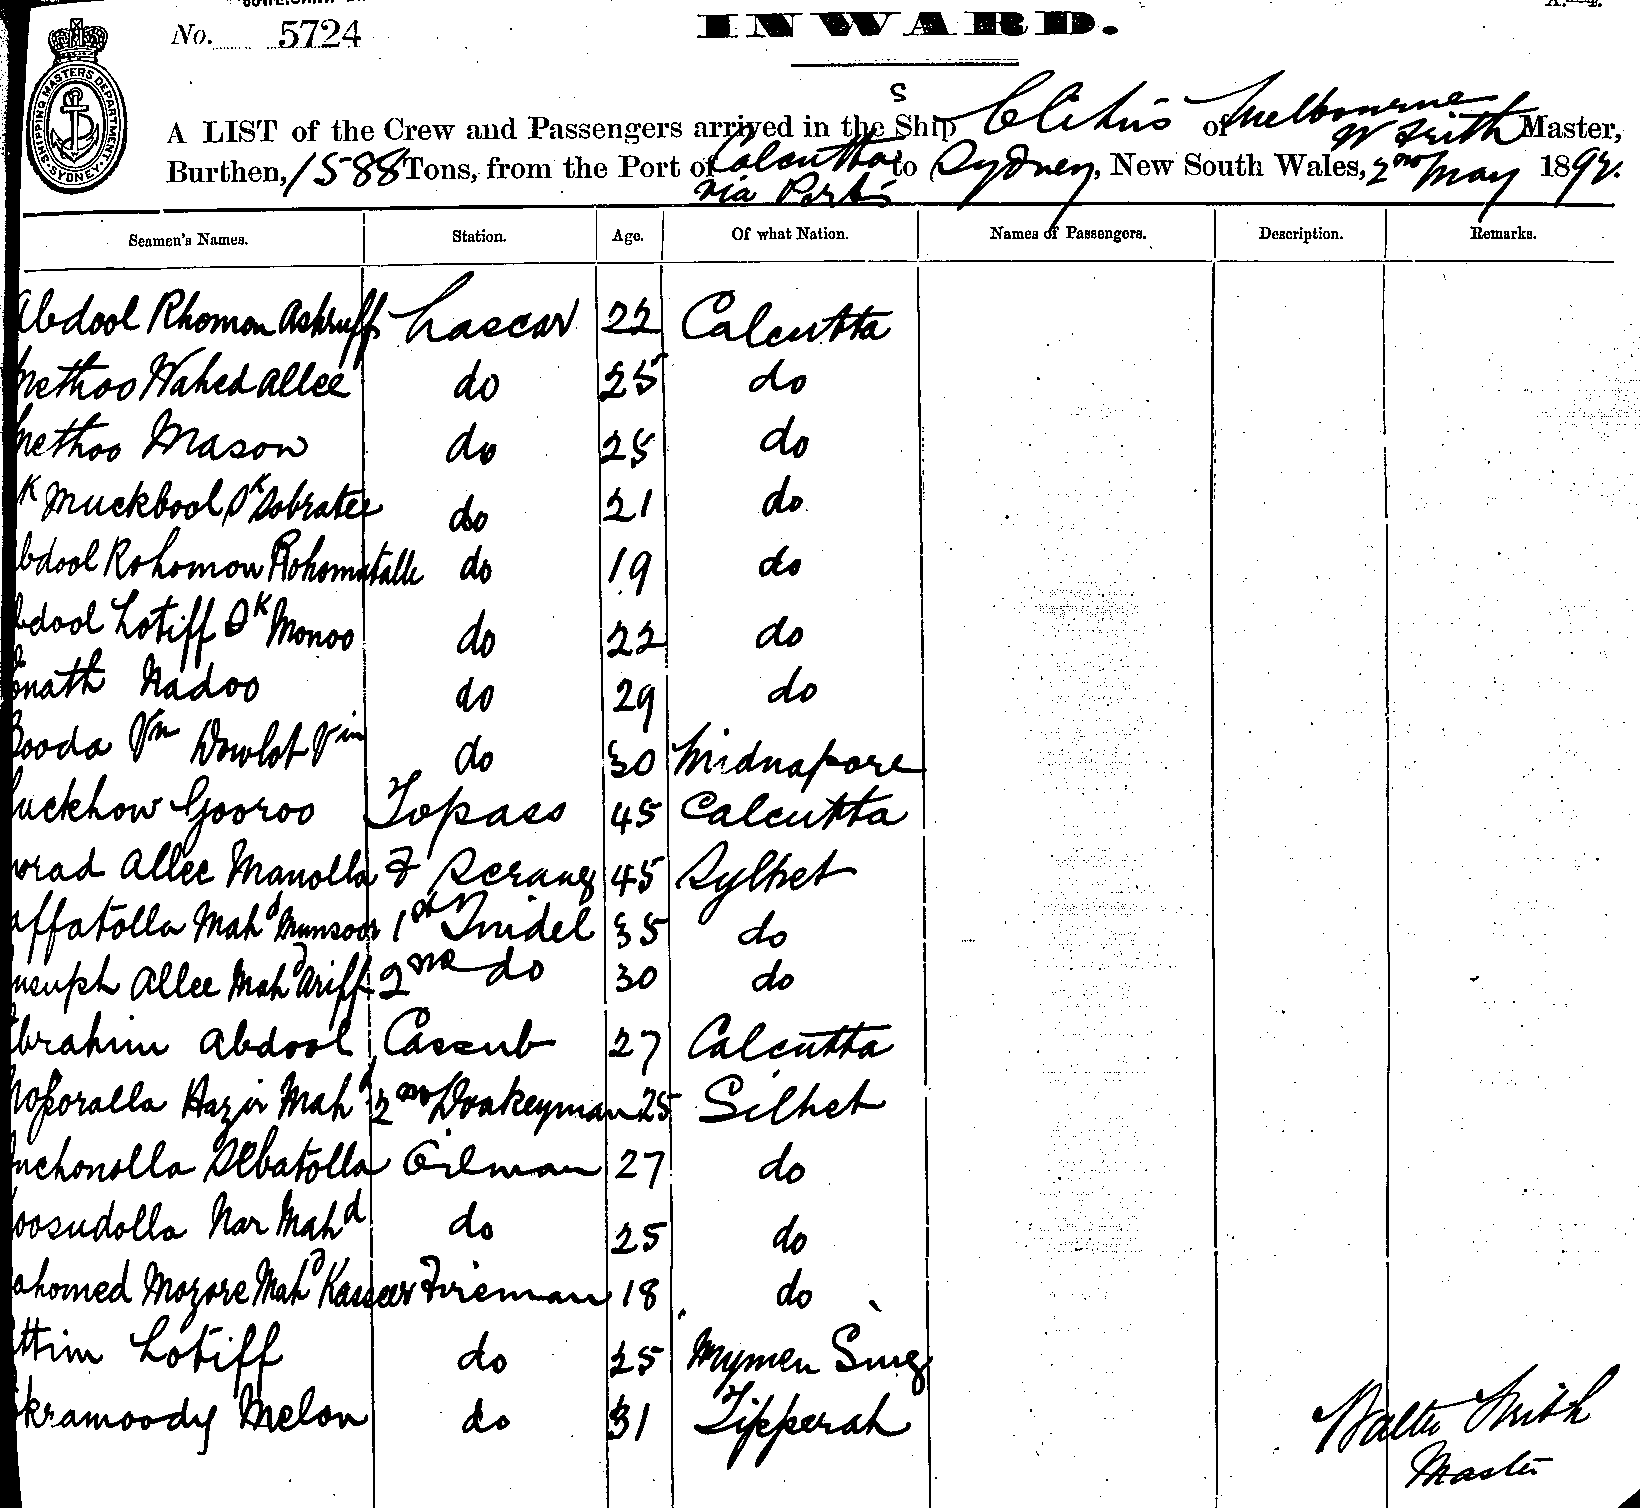 No. 5724
INWARD.
SHIPPING MASTERS DEPARTMENT SYDNEY
A LIST of the Crew and Passengers arrived in the S Ship Clitus of Melbourne W Frith Master,
Burthen, 1588 Tons, from the Port of Calcutta to Sydney, New South Wales, 2nd May 189
via Ports
Seamen's Names. Station. Age. Of what Nation. Names of Passengers. Description. Remarks.
Abdool Rhomon Ashruff Lascar 22 Calcutta
Methoo Wahed Allee do 25 do
Methoo Mason do 25 do
k Muckbool Sk Sobratee do 21 do
bdool Rohomon Rohomutalle do 19 do
bdool Lotiff Sk Monoo do 22 do
onath Nadoo do 29 do
Booda Dowlot do 30 Midnapore
uckhow Gooroo Topass 45 Calcutta
orad Allee Manolla F Serang 45 Sylhet
affatolla Mahd Munsoor 1st Tindel 35 do
useuph Allee Mahd Ariff 2nd do 30 do
Ibrahim Abdool Cassub 27 Calcutta
Moforalla Hazir Mahd 2nd Donkeyman 25 Silhet
uchonolla Slbatolla Oilman 27 do
oosudolla Nar Mahd do 25 do
ahomed Mozore Mahd Kasseer Fireman 18 do
ttim Lotiff do 25 Mymen Sing
kramoody Melon do 31 Tipperah
Walter Frith
Master